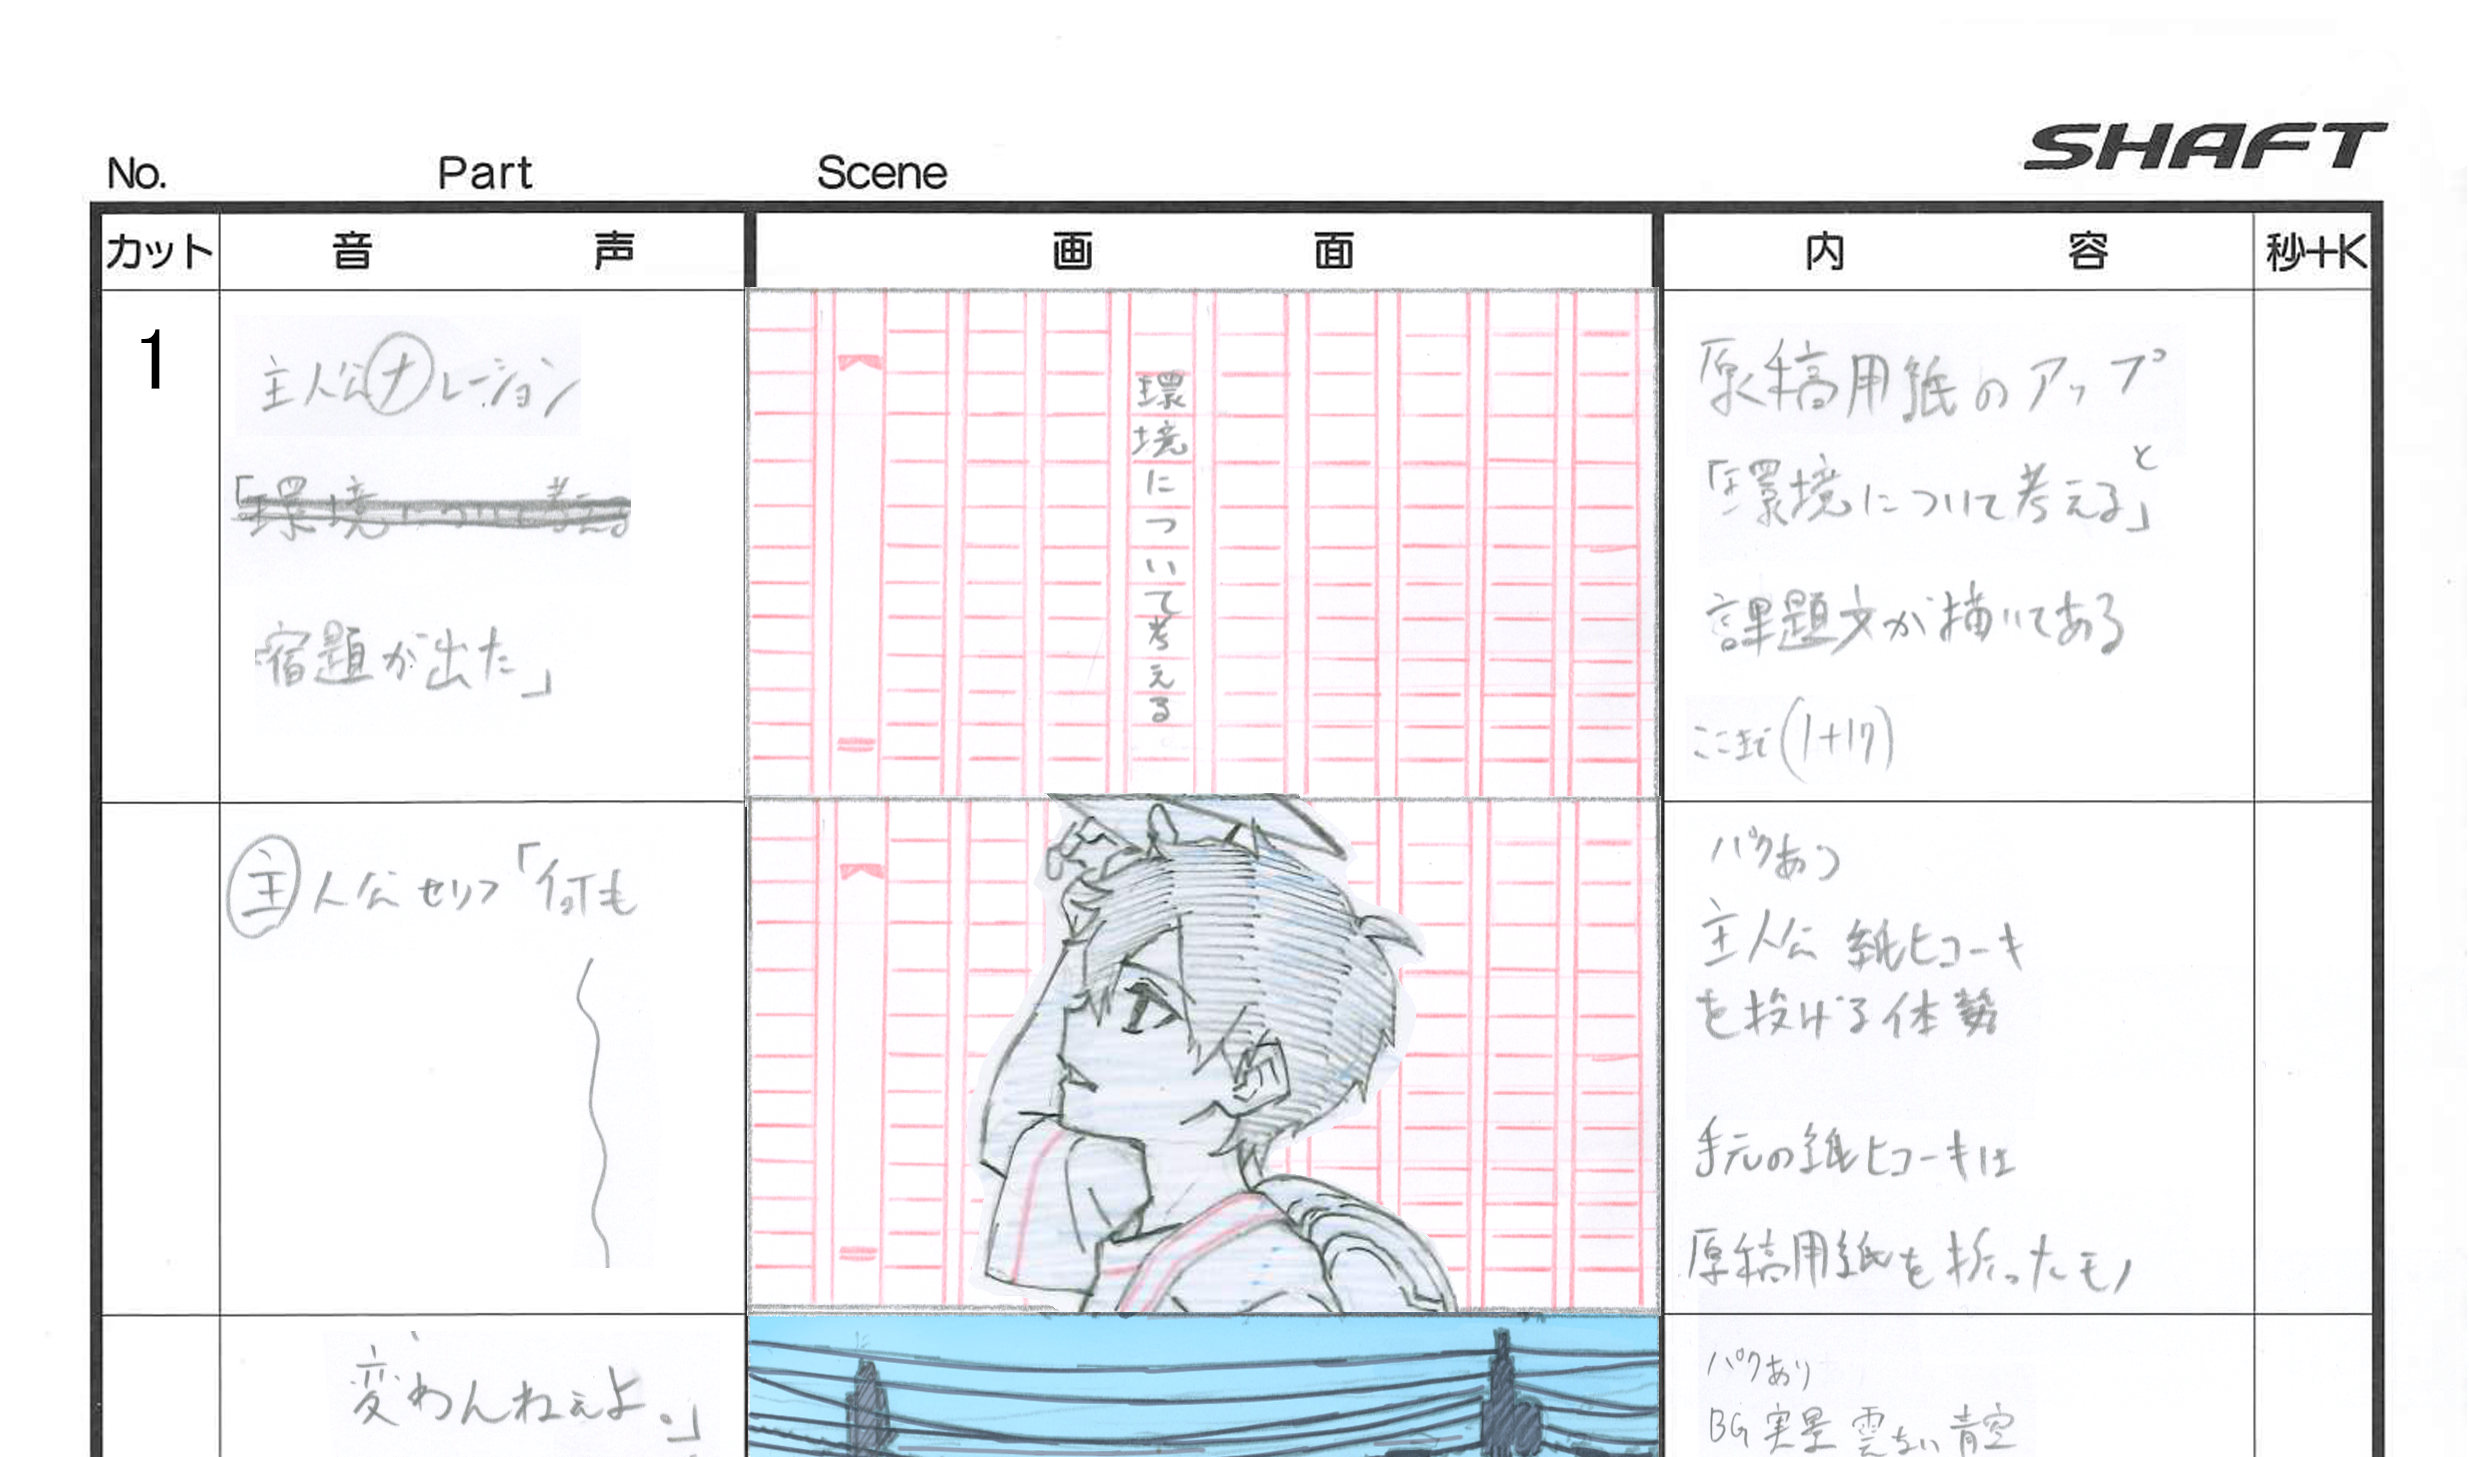 SHAFT
No. Part Scene
カット 音声 画面 内容 秒+K
1
主人公ナレーション
「環境について考える
宿題が出た」
環境について考える
原稿用紙のアップ
「環境について考える」と
課題文が描いてある
ここまで(1+17)
主人公セリフ「何も
パクあり
主人公 紙ヒコーキ
を投げる体勢
手元の紙ヒコーキは
原稿用紙を折ったモノ
変わんねぇよ。」
パクあり
BG 実景 雲ない青空